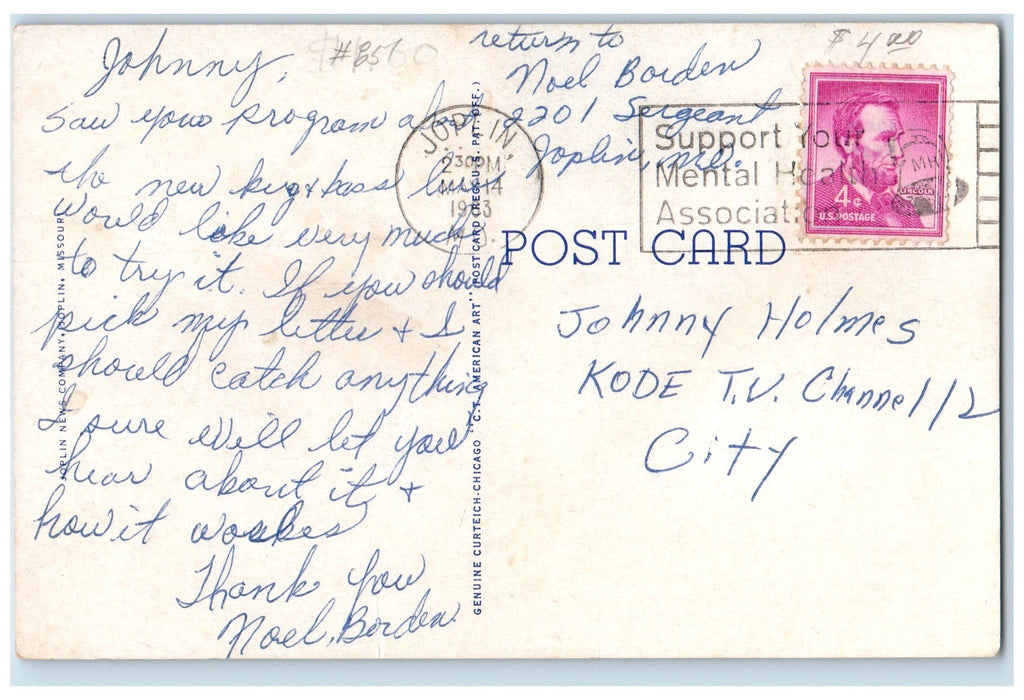 Johnny,
Saw your program
the new bass lure
would like very much
to try it. If you should
pick my letter + I
should catch anything
I sure will let you
hear about it +
how it works
Thank you
Noel Borden.
JOPLIN NEWS COMPANY, JOPLIN, MISSOURI
GENUINE CURTEICH-CHICAGO "C.T. AMERICAN ART" POST CARD (REG. U.S. PAT. OFF.)
return to
Noel Borden
2201 Sergeant
Joplin, Mo.
$4.00
JOPLIN
230PM
14
Support Your
Mental Health
Association
4¢
LINCOLN
U.S. POSTAGE
MH
POST CARD
Johnny Holmes
KODE T.V. Channel 12
City